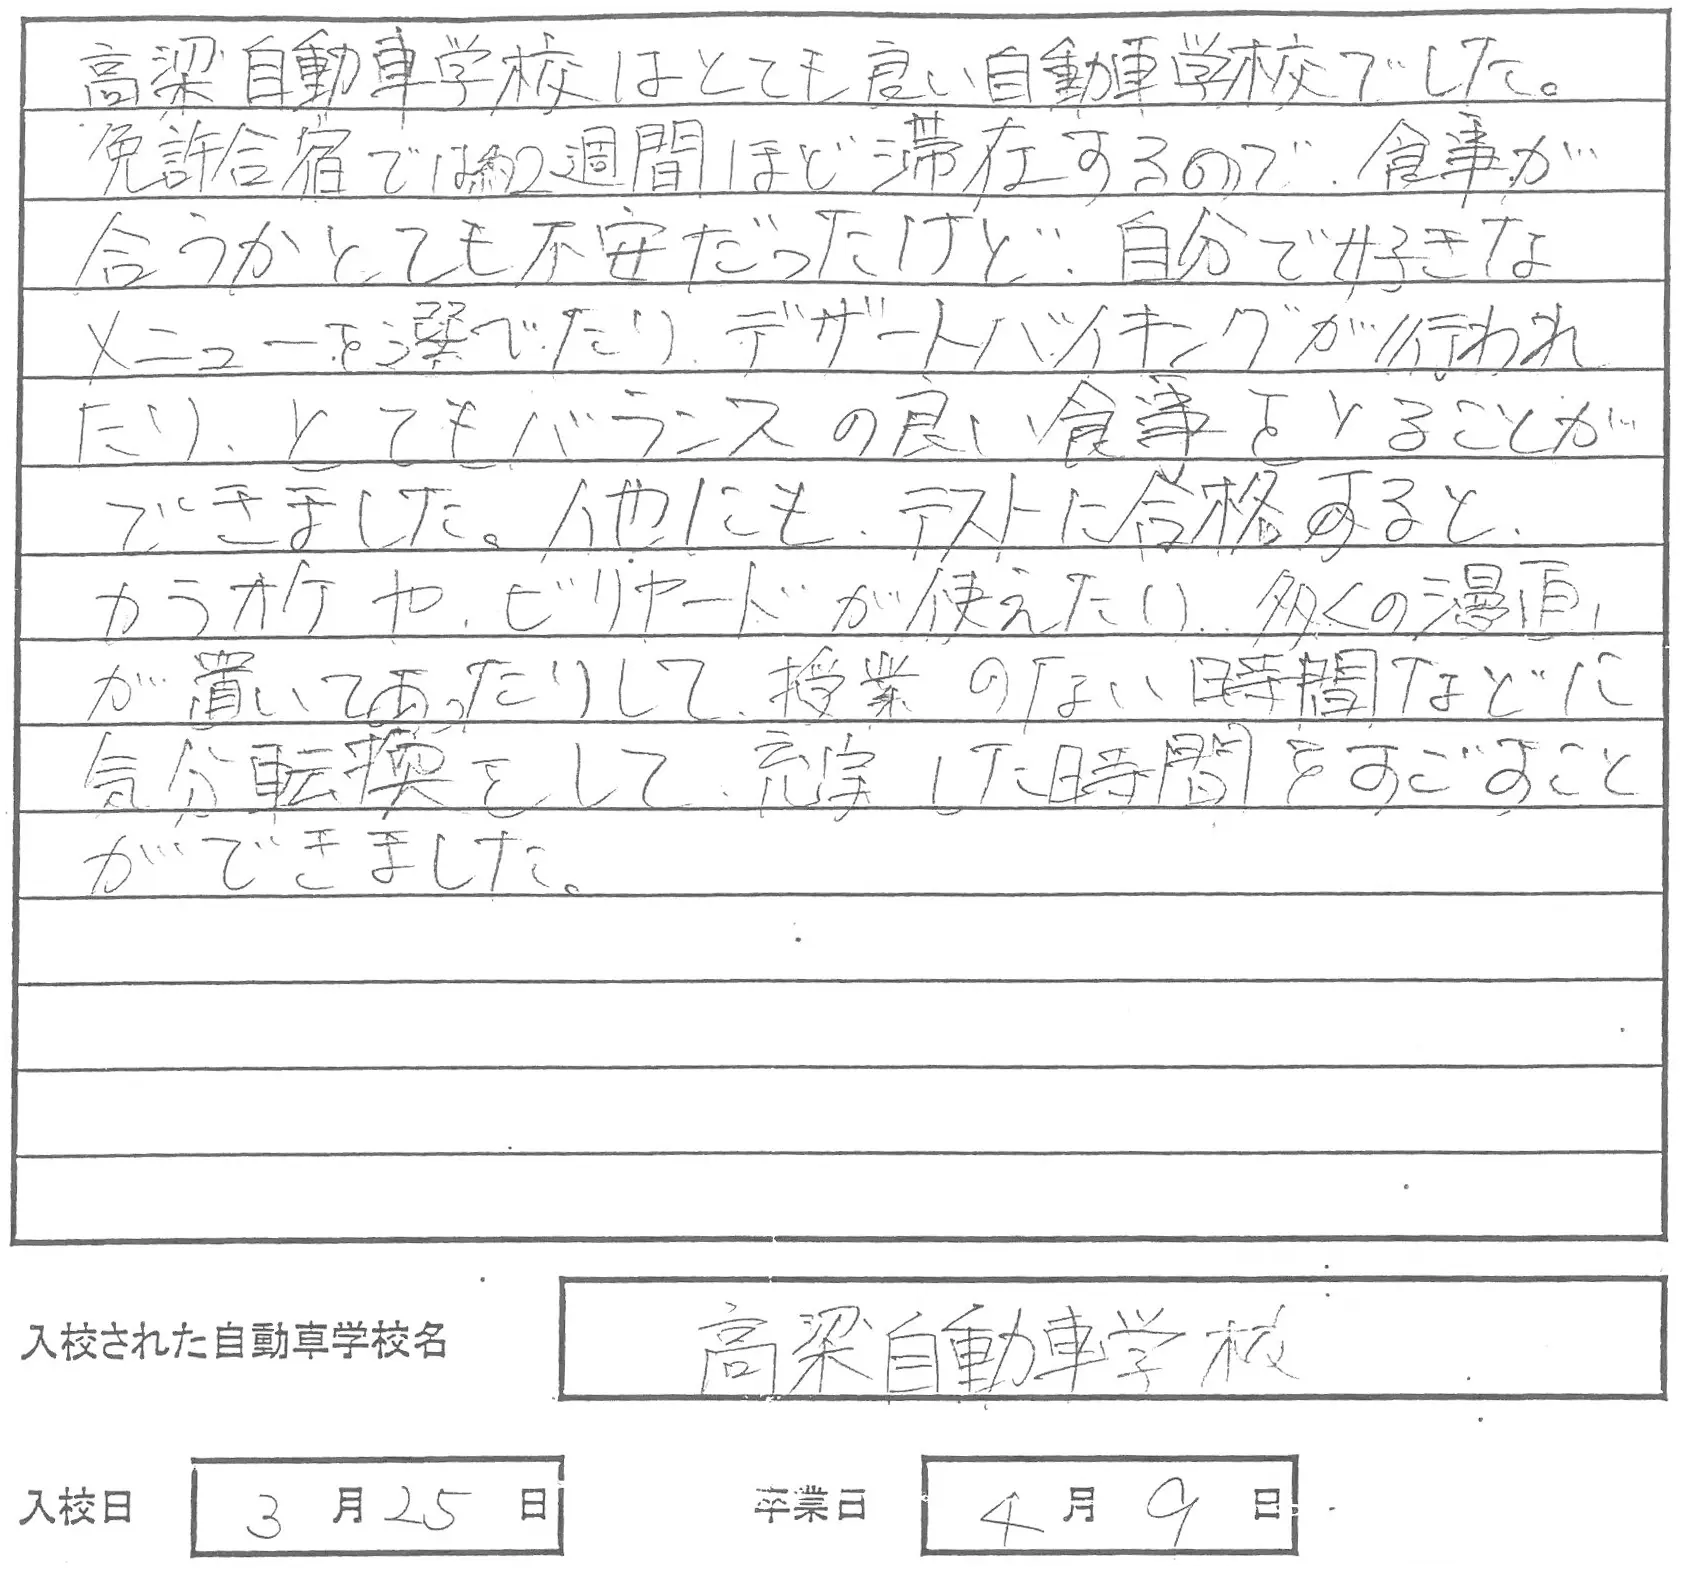 高梁自動車学校はとても良い自動車学校でした。
免許合宿では約2週間ほど滞在するので、食事が
合うかとても不安だったけど、自分で好きな
メニューを選でたり、デザートバイキングが行われ
たり、とてもバランスの良い食事をとることが
できました。他にも、テストに合格すると、
カラオケや、ビリヤードが使えたり、多くの漫画
が置いてあったりして、授業のない時間などに
気分転換をして、充実した時間をすごすこと
ができました。
入校された自動車学校名 高梁自動車学校
入校日 3月25日 卒業日 4月9日